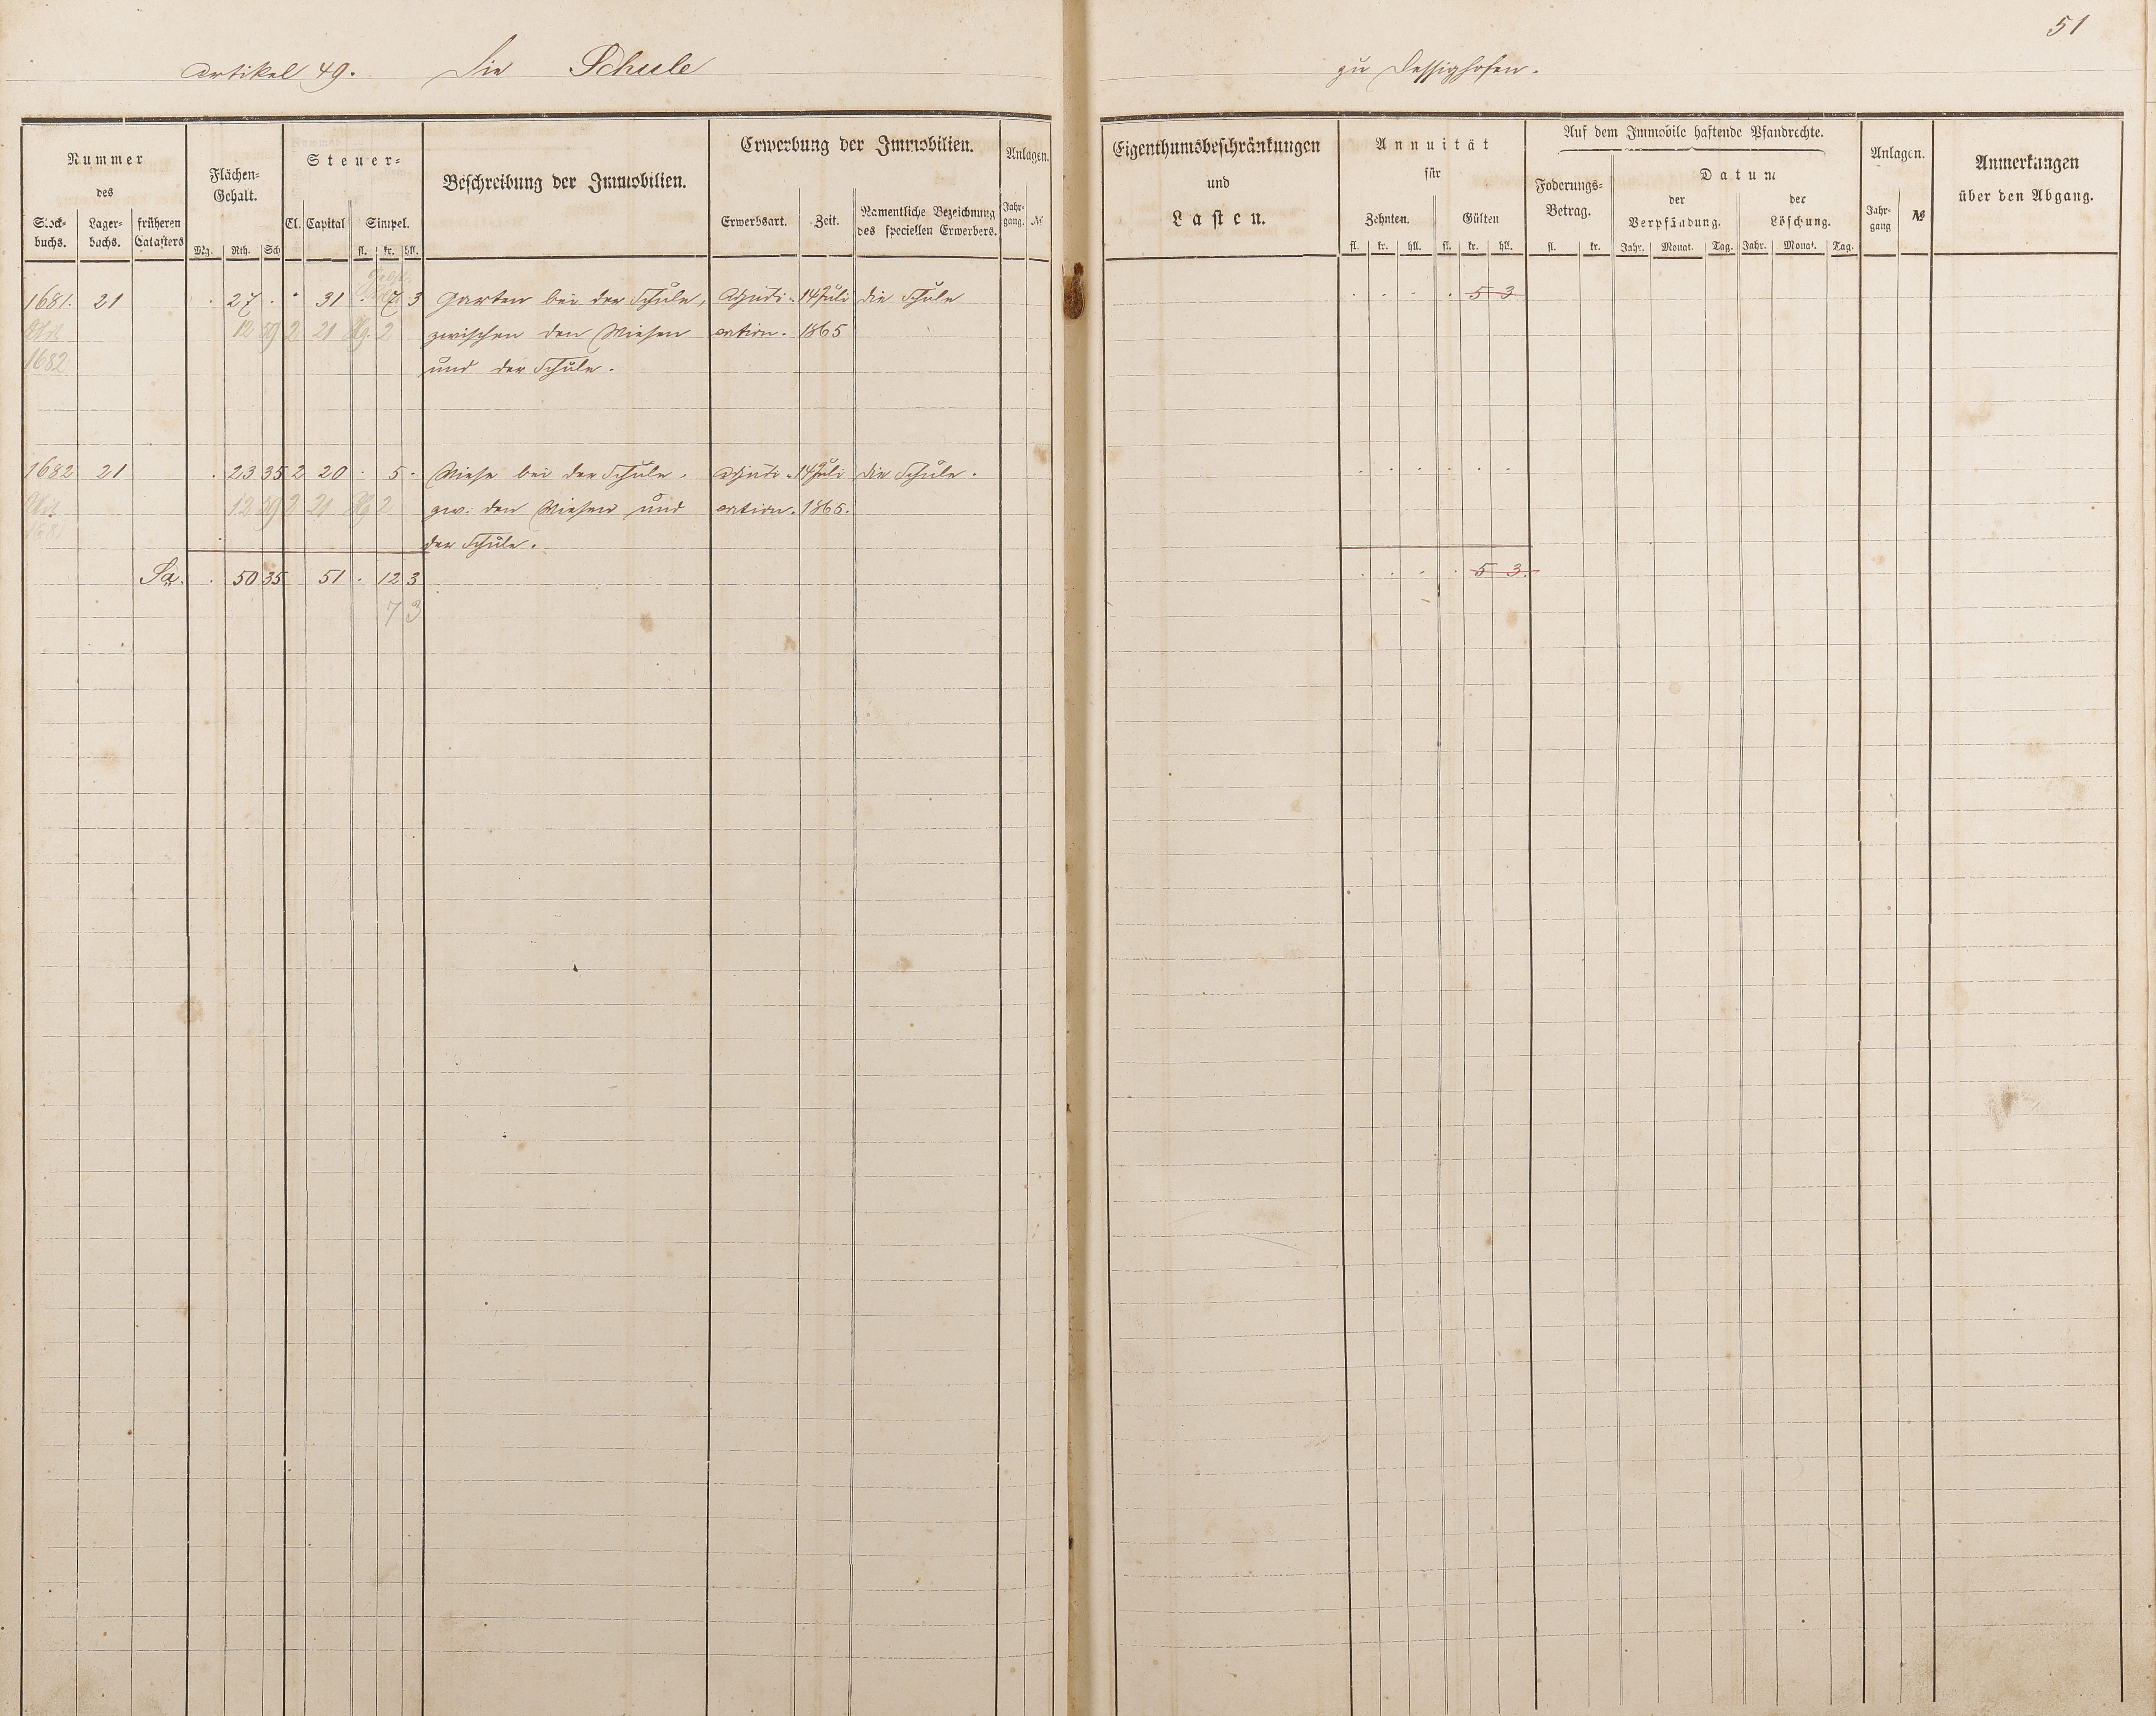 51
Artikel 49. Die Schule zu Dessighofen.
Nummer
des
Stock-
buchs.
Lager-
buchs.
früheren
Catasters
Flächen-
Gehalt.
Mg. Rth. Sch
Steuer-
Cl. Capital Simpel.
fl. kr. hll.
Beschreibung der Immobilien.
Erwerbung der Immobilien.
Erwerbsart. Zeit. Namentliche Bezeichnung
des speciellen Erwerbers.
Anlagen.
Jahr-
gang. №
Eigenthumsbeschränkungen
und
Lasten.
Annuität
für
Zehnten. Gülten
fl. kr. hll. fl. kr. hll.
Auf dem Immobile haftende Pfandrechte.
Foderungs-
Betrag.
fl. kr.
Datum
der
Verpfändung.
der
Löschung.
Jahr. Monat. Tag. Jahr. Monat. Tag.
Anlagen.
Jahr-
gang №
Anmerkungen
über den Abgang.
1681. 21 . 27 . . 31 . 7 3 Garten bei der Schule, Adjudi- 14 Juli die Schule . . . . 5 3
12 59 2 21 2 zwischen den Wiesen cation. 1865
1682 und der Schule.
1682 21 . 23 35 2 20 . 5 . Wiese bei der Schule, Adjudi- 14 Juli die Schule. . . . . . .
12 59 2 21 2 zw: den Wiesen und cation. 1865.
1681 der Schule.
Sa. . 50 35 51 . 12 3 . . . . 5 3.
7 3